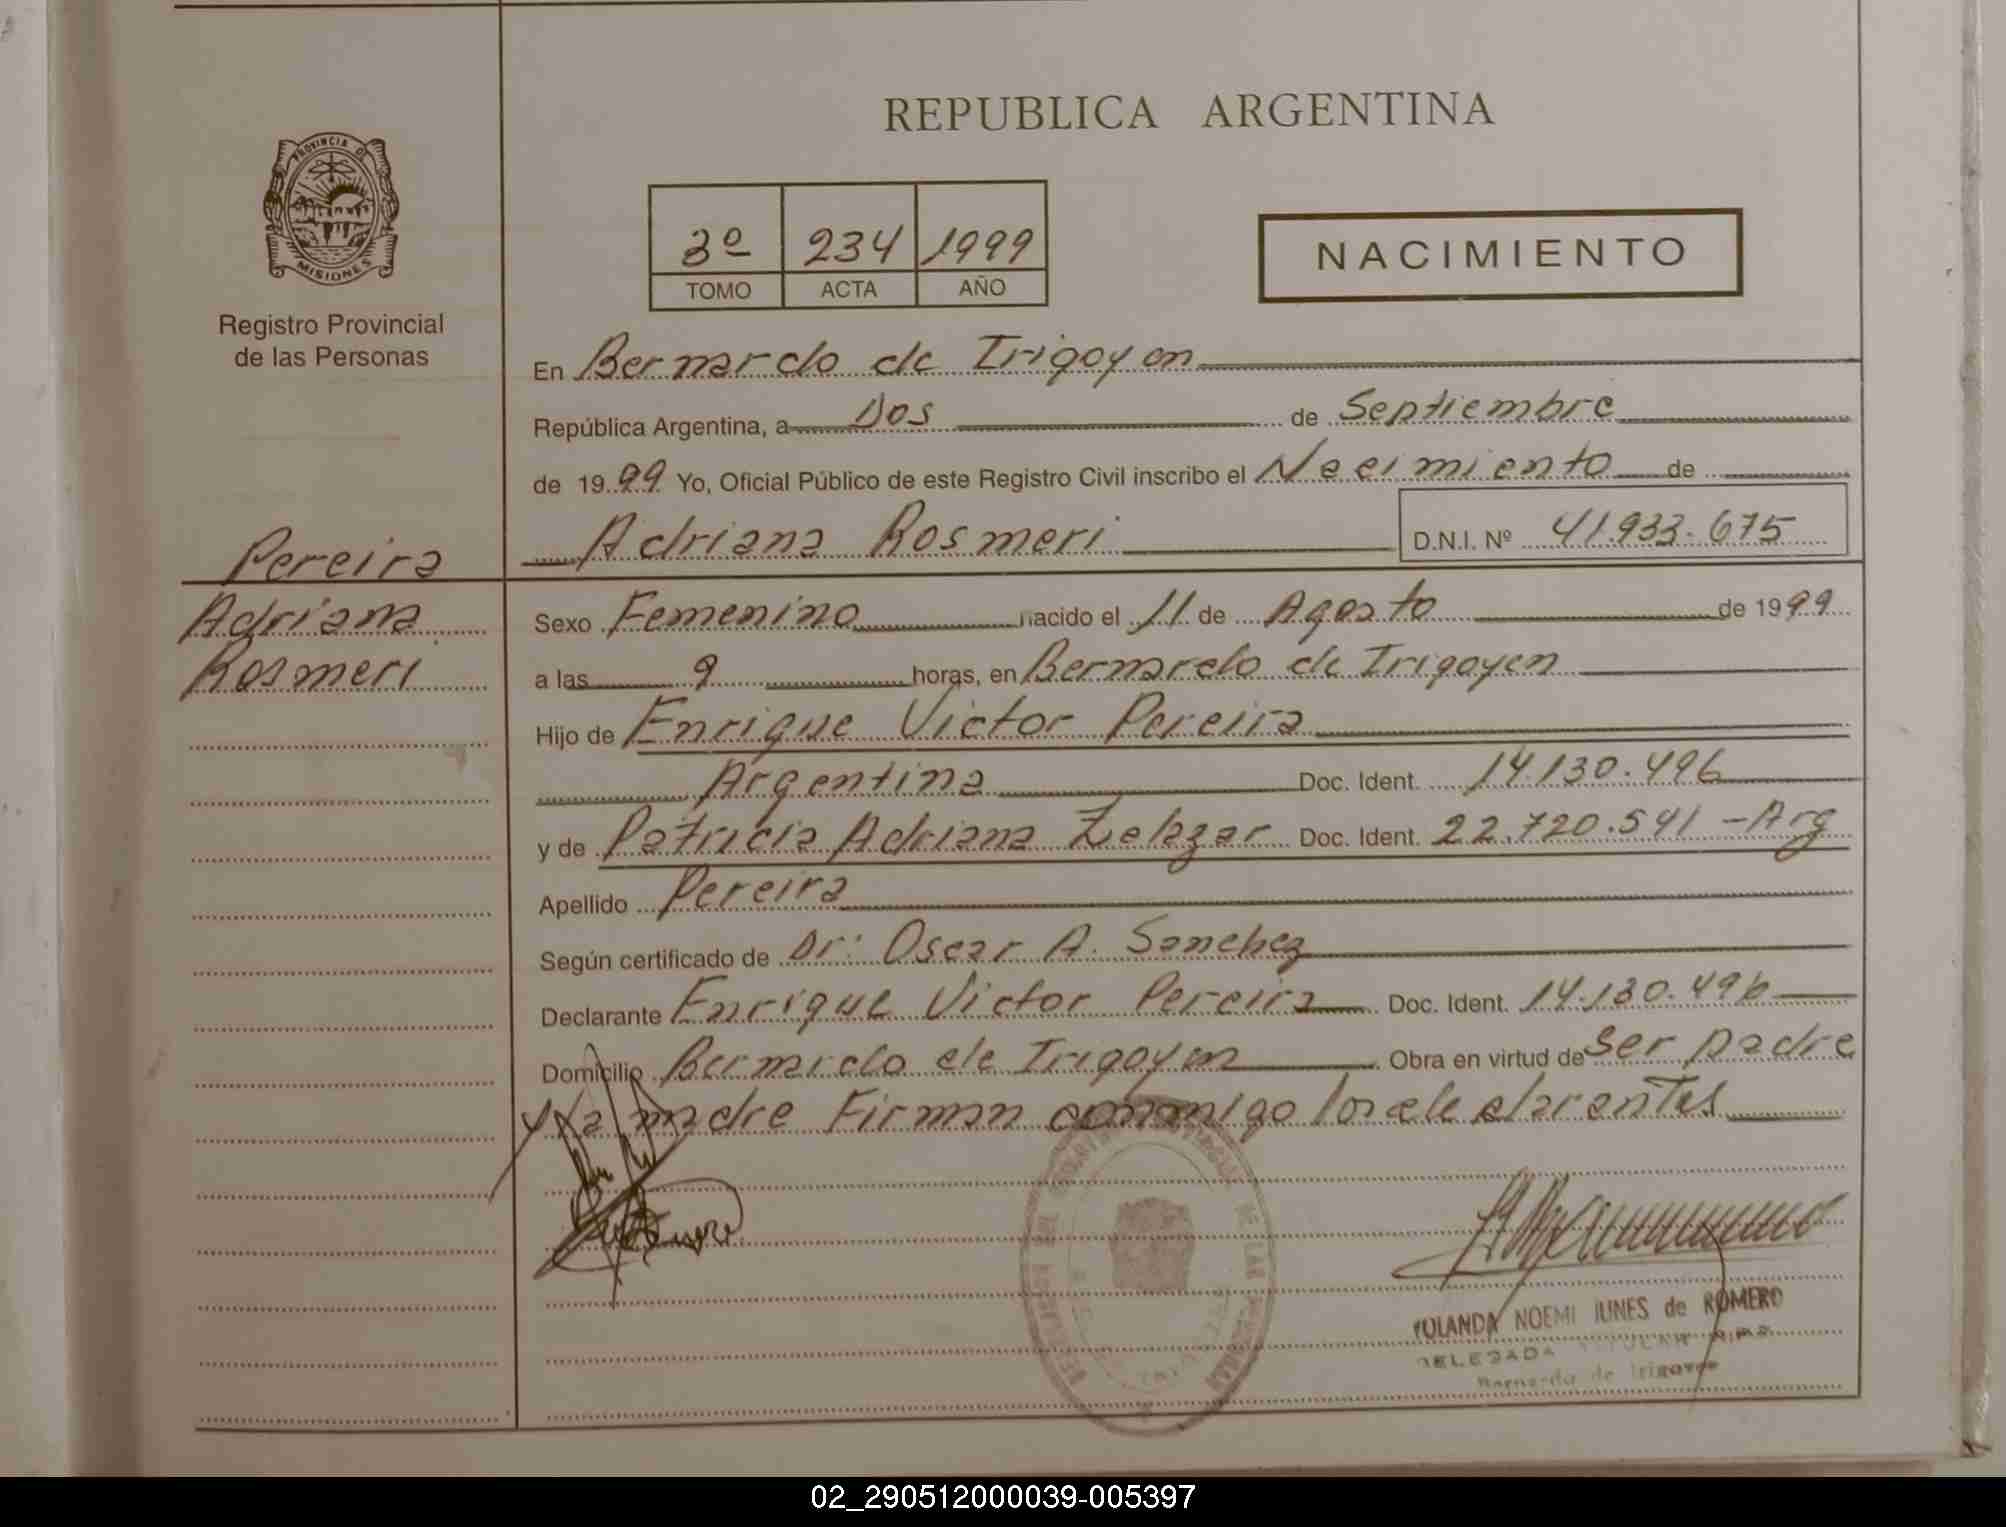 REPUBLICA ARGENTINA
PROVINCIA DE
MISIONES
Registro Provincial
de las Personas
3º 234 1999
TOMO ACTA AÑO
NACIMIENTO
En Bernardo de Irigoyen
República Argentina, a Dos de Septiembre
de 1999 Yo, Oficial Público de este Registro Civil inscribo el Nacimiento de
Adriana Rosmeri D.N.I. Nº 41.933.675
Pereira
Adriana
Rosmeri
Sexo Femenino nacido el 11 de Agosto de 1999
a las 9 horas, en Bernardo de Irigoyen
Hijo de Enrique Victor Pereira
Argentina Doc. Ident. 14.130.496
y de Patricia Adriana Doc. Ident. 22.720.541 - Arg
Apellido Pereira
Según certificado de Dr: Oscar A. Sanchez
Declarante Enrique Victor Pereira Doc. Ident. 14.130.496
Domicilio Bernardo de Irigoyen Obra en virtud de ser padre
y la madre Firman conmigo los declarantes
DE LAS
YOLANDA NOEMI de ROMERO
DELEGADA TITULAR
Bernardo de Irigoyen
02_290512000039-005397